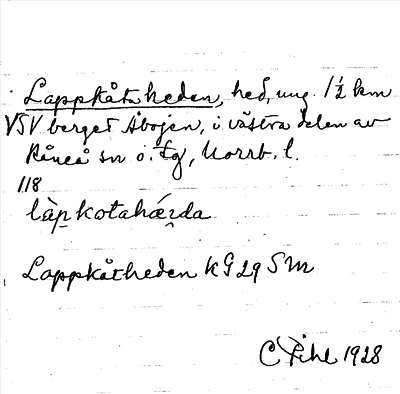 Lappkåtheden, hed, ung. 1½ km
VSV berget Åbojen, i västra delen av
Råneå sn o. tg, Norrb. l.
118
làpkotahæ̀da
Lappkåtheden KG 29 SM
C Pihl 1928